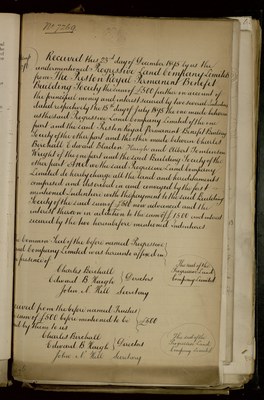 Received this 23rd day of December 1895 by us the
undermentioned Progressive Land Company Limited
from The Preston Royal Permanent Benefit
Building Society the sum of £500 further on account of
the principal money and interest secured by two several Indentures
dated respectively the day of July 1895 the one made between
us the said Progressive Land Company Limited of the one
part and the said Preston Royal Permanent Benefit Building
Society of the other part and the other made between Charles
Berchall Edward Blundon Haigh and Albert
Wright of the one part and the said Building Society of the
other part And we the said Progressive Land Company
Limited do hereby charge all the land and hereditaments
comprised and described in and conveyed by the first
mentioned Indenture with the payment to the said Building
Society of the said sum of £500 now advanced and the
interest thereon in addition to the sum of £1500 and interest
secured by the two hereinbefore mentioned indentures
The Common Seal of the before named Progressive
Land Company Limited was hereunto affixed in
the presence of
Charles Berchall
Edward B Haigh } Directors
John N. Hill Secretary
The seal of the
Progressive Land
Company Limited
Received from the before named Trustees
the sum of £500 before mentioned to be
paid by them to us } £500
Charles Berchall
Edward B Haigh } Directors
John N. Hill Secretary
The seal of the
Progressive Land
Company Limited